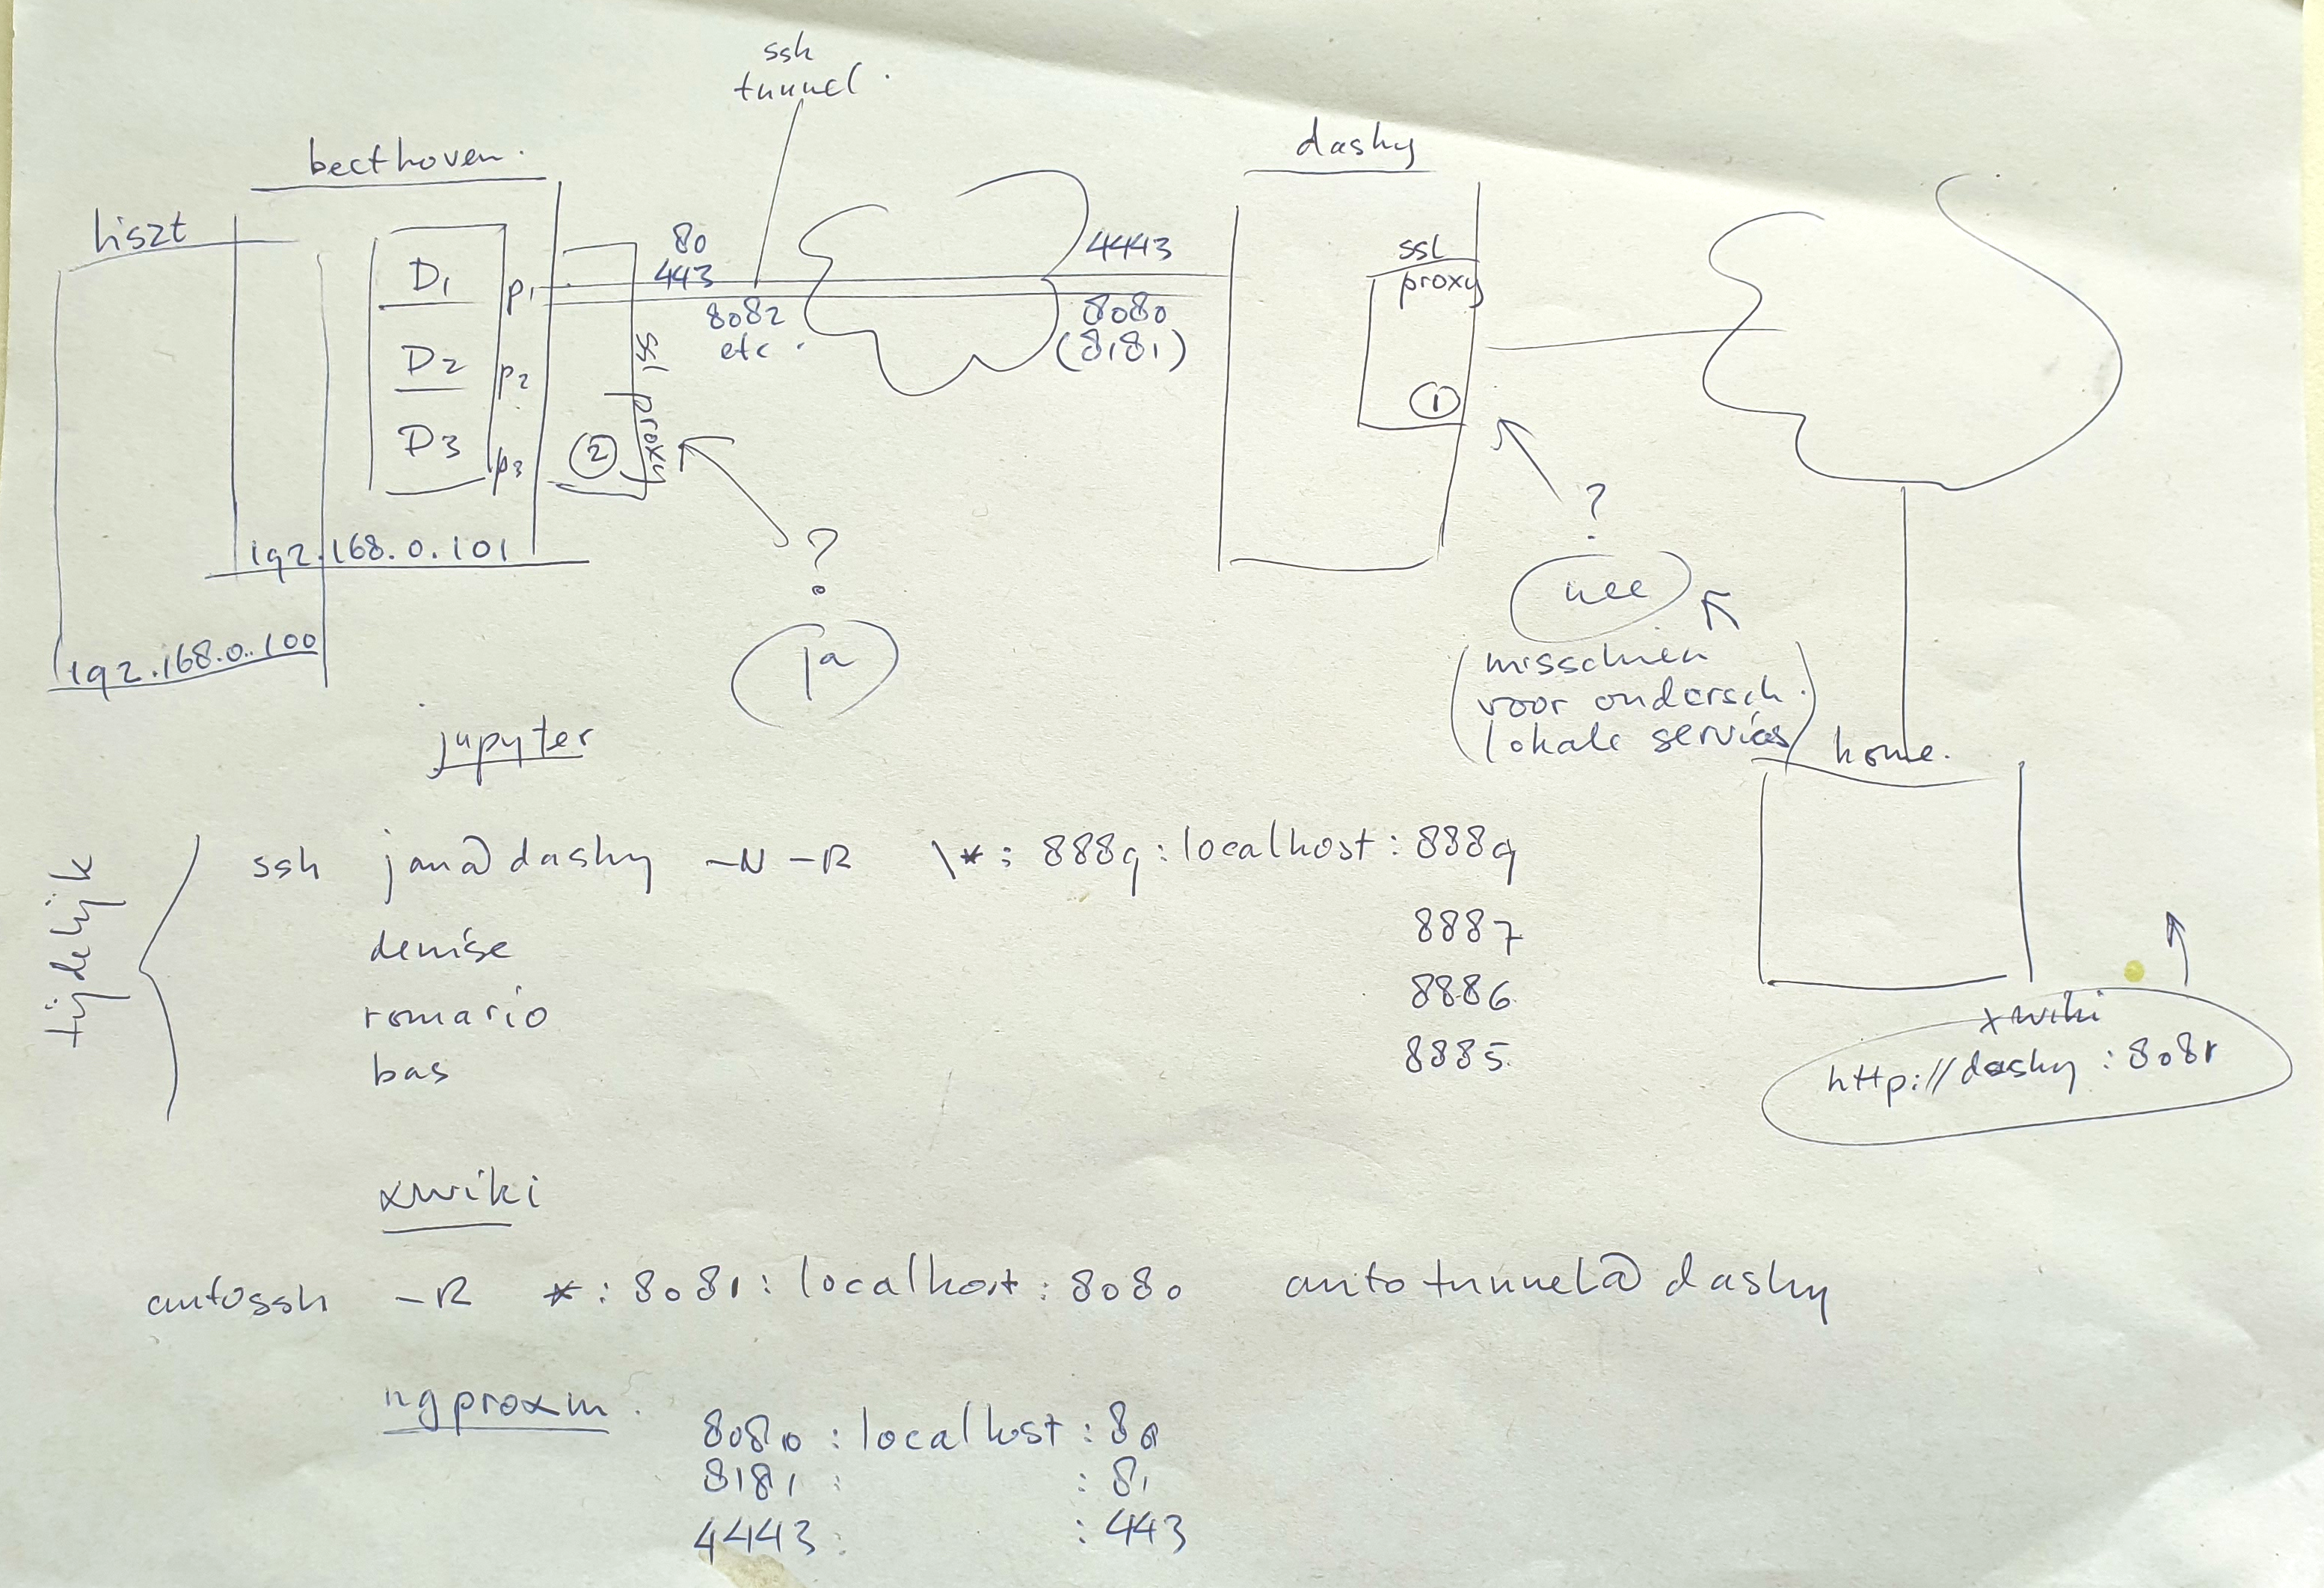 ssh
tunnel.
beethoven.
dashy
liszt
D1
p1
D2
p2
D3
p3
2
ssl proxy
80
443
8082
etc.
4443
8080
(8181)
ssl
proxy
1
192.168.0.101
192.168.0.100
?
ja
?
nee
(misschien
voor ondersch.
lokale services)
home.
jupyter
tijdelijk
ssh jan@dashy -N -R \*:8889:localhost:8889
denise 8887
romario 8886
bas 8885
xwiki
http://dashy:8081
xwiki
autossh -R *:8081:localhost:8080 autotunnel@dashy
ngproxm.
8080:localhost:80
8181: :81
4443: :443